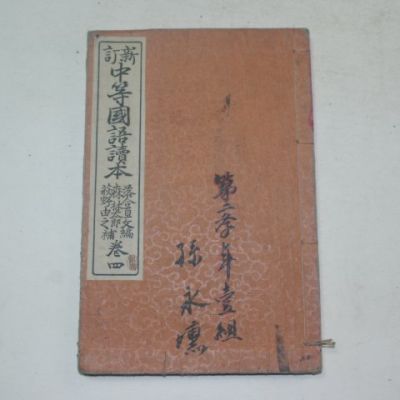 新訂
中等國語讀本
落合直文編
森林太郎
萩野由之補
卷四
第二斈年壹組
孫永